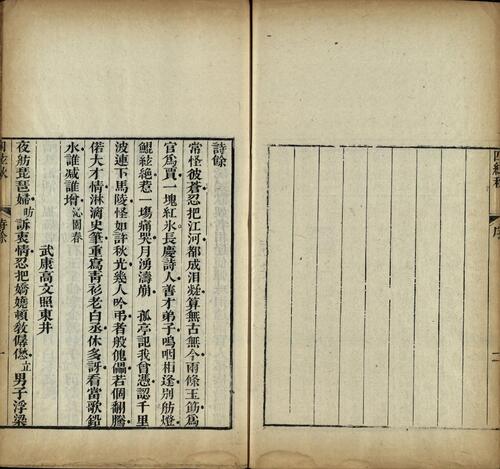 四絃秋 序 二
詩餘
常怪彼蒼忍把江河都成泪凝算無古無今兩條玉筯爲
官爲賈一塊紅氷長慶詩人善才弟子嗚咽相逢別舫燈
鯤絃絶惹一場痛哭月湧濤崩 孤亭記我曾憑認千里
波連下馬陵怪如許秋光幾人吟弔者般傀儡若個翻騰
偌大才情淋漓史筆重寫青衫老白丞休多訝看當歌鉛
水誰減誰增沁園春
武康高文照東井
夜舫琵琶婦昉訴衷情忍把嬌嬈頓敎僝僽立男子浮梁
四絃秋 詩餘 一